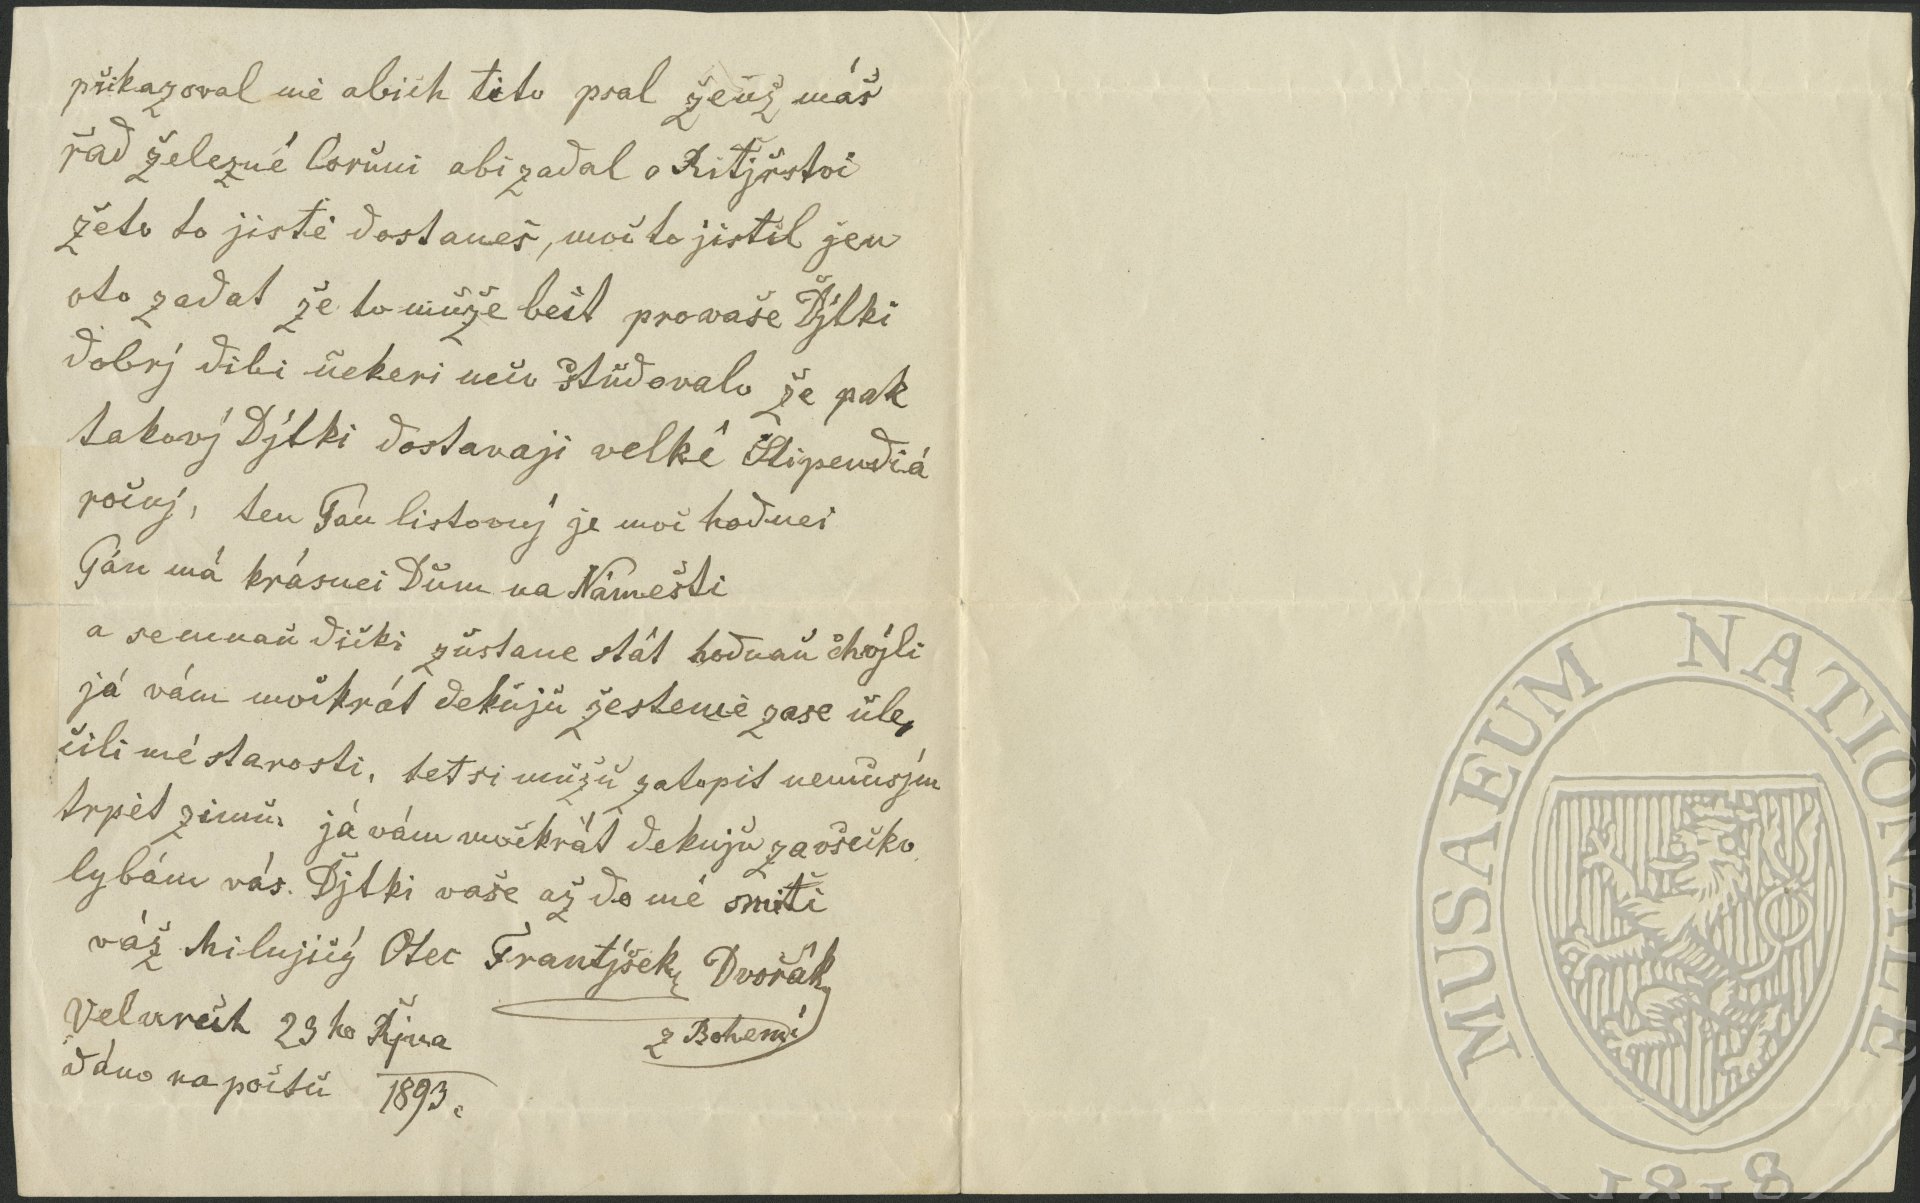 přikazoval mě abich tito psal žeuž máš
řad železné Coruni abi zadal o Ritjřstvi
žeto to jistě dostaneš, moc to jistil jen
oto zadat že to může beit provaše Djtki
dobrj dibi nekeri neco študovalo že pak
takovj Djtki dostavaji velké Stipendiá
ročnj, ten Pan listovnj je moc hodnei
Pán má krásnei Dům na Náměsti
a semnau dicki zůstane stát hodnau chvjli
já vám mockrát dekuju žesteme zase ule,
čili mé starosti, teť si můžu zatopit nemusjm
trpět zimu. já vám mockrát dekuju zavšecko
lybám vás. Djtki vaše až do mé smrti
váž Milujicý Otec Frantjšek Dvořák
z Bohemi
Velvarech 23 ho Řjna
dáno na poštu 1893.
MUSAEUM NATIONALE
1818